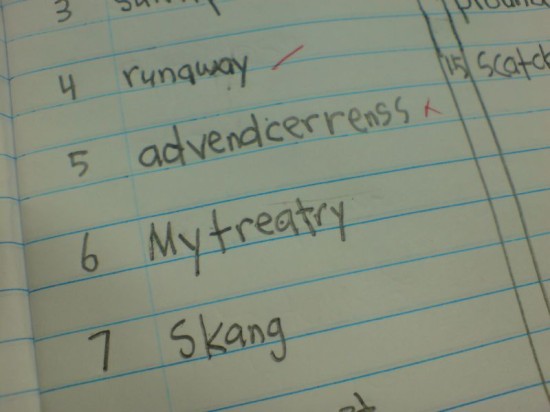 3
4 runaway
5 advendcerrenss
6 Mytreatry
7 Skang
15 Scatch